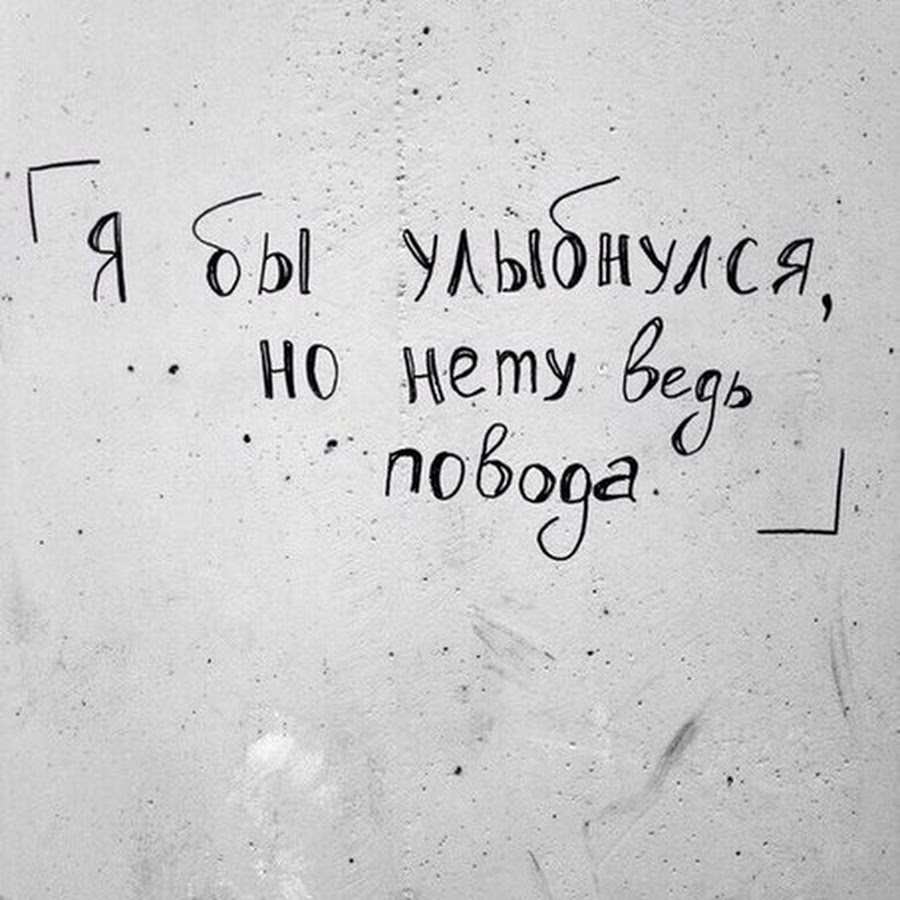 「Я бы улыбнулся,
но нету ведь
повода」